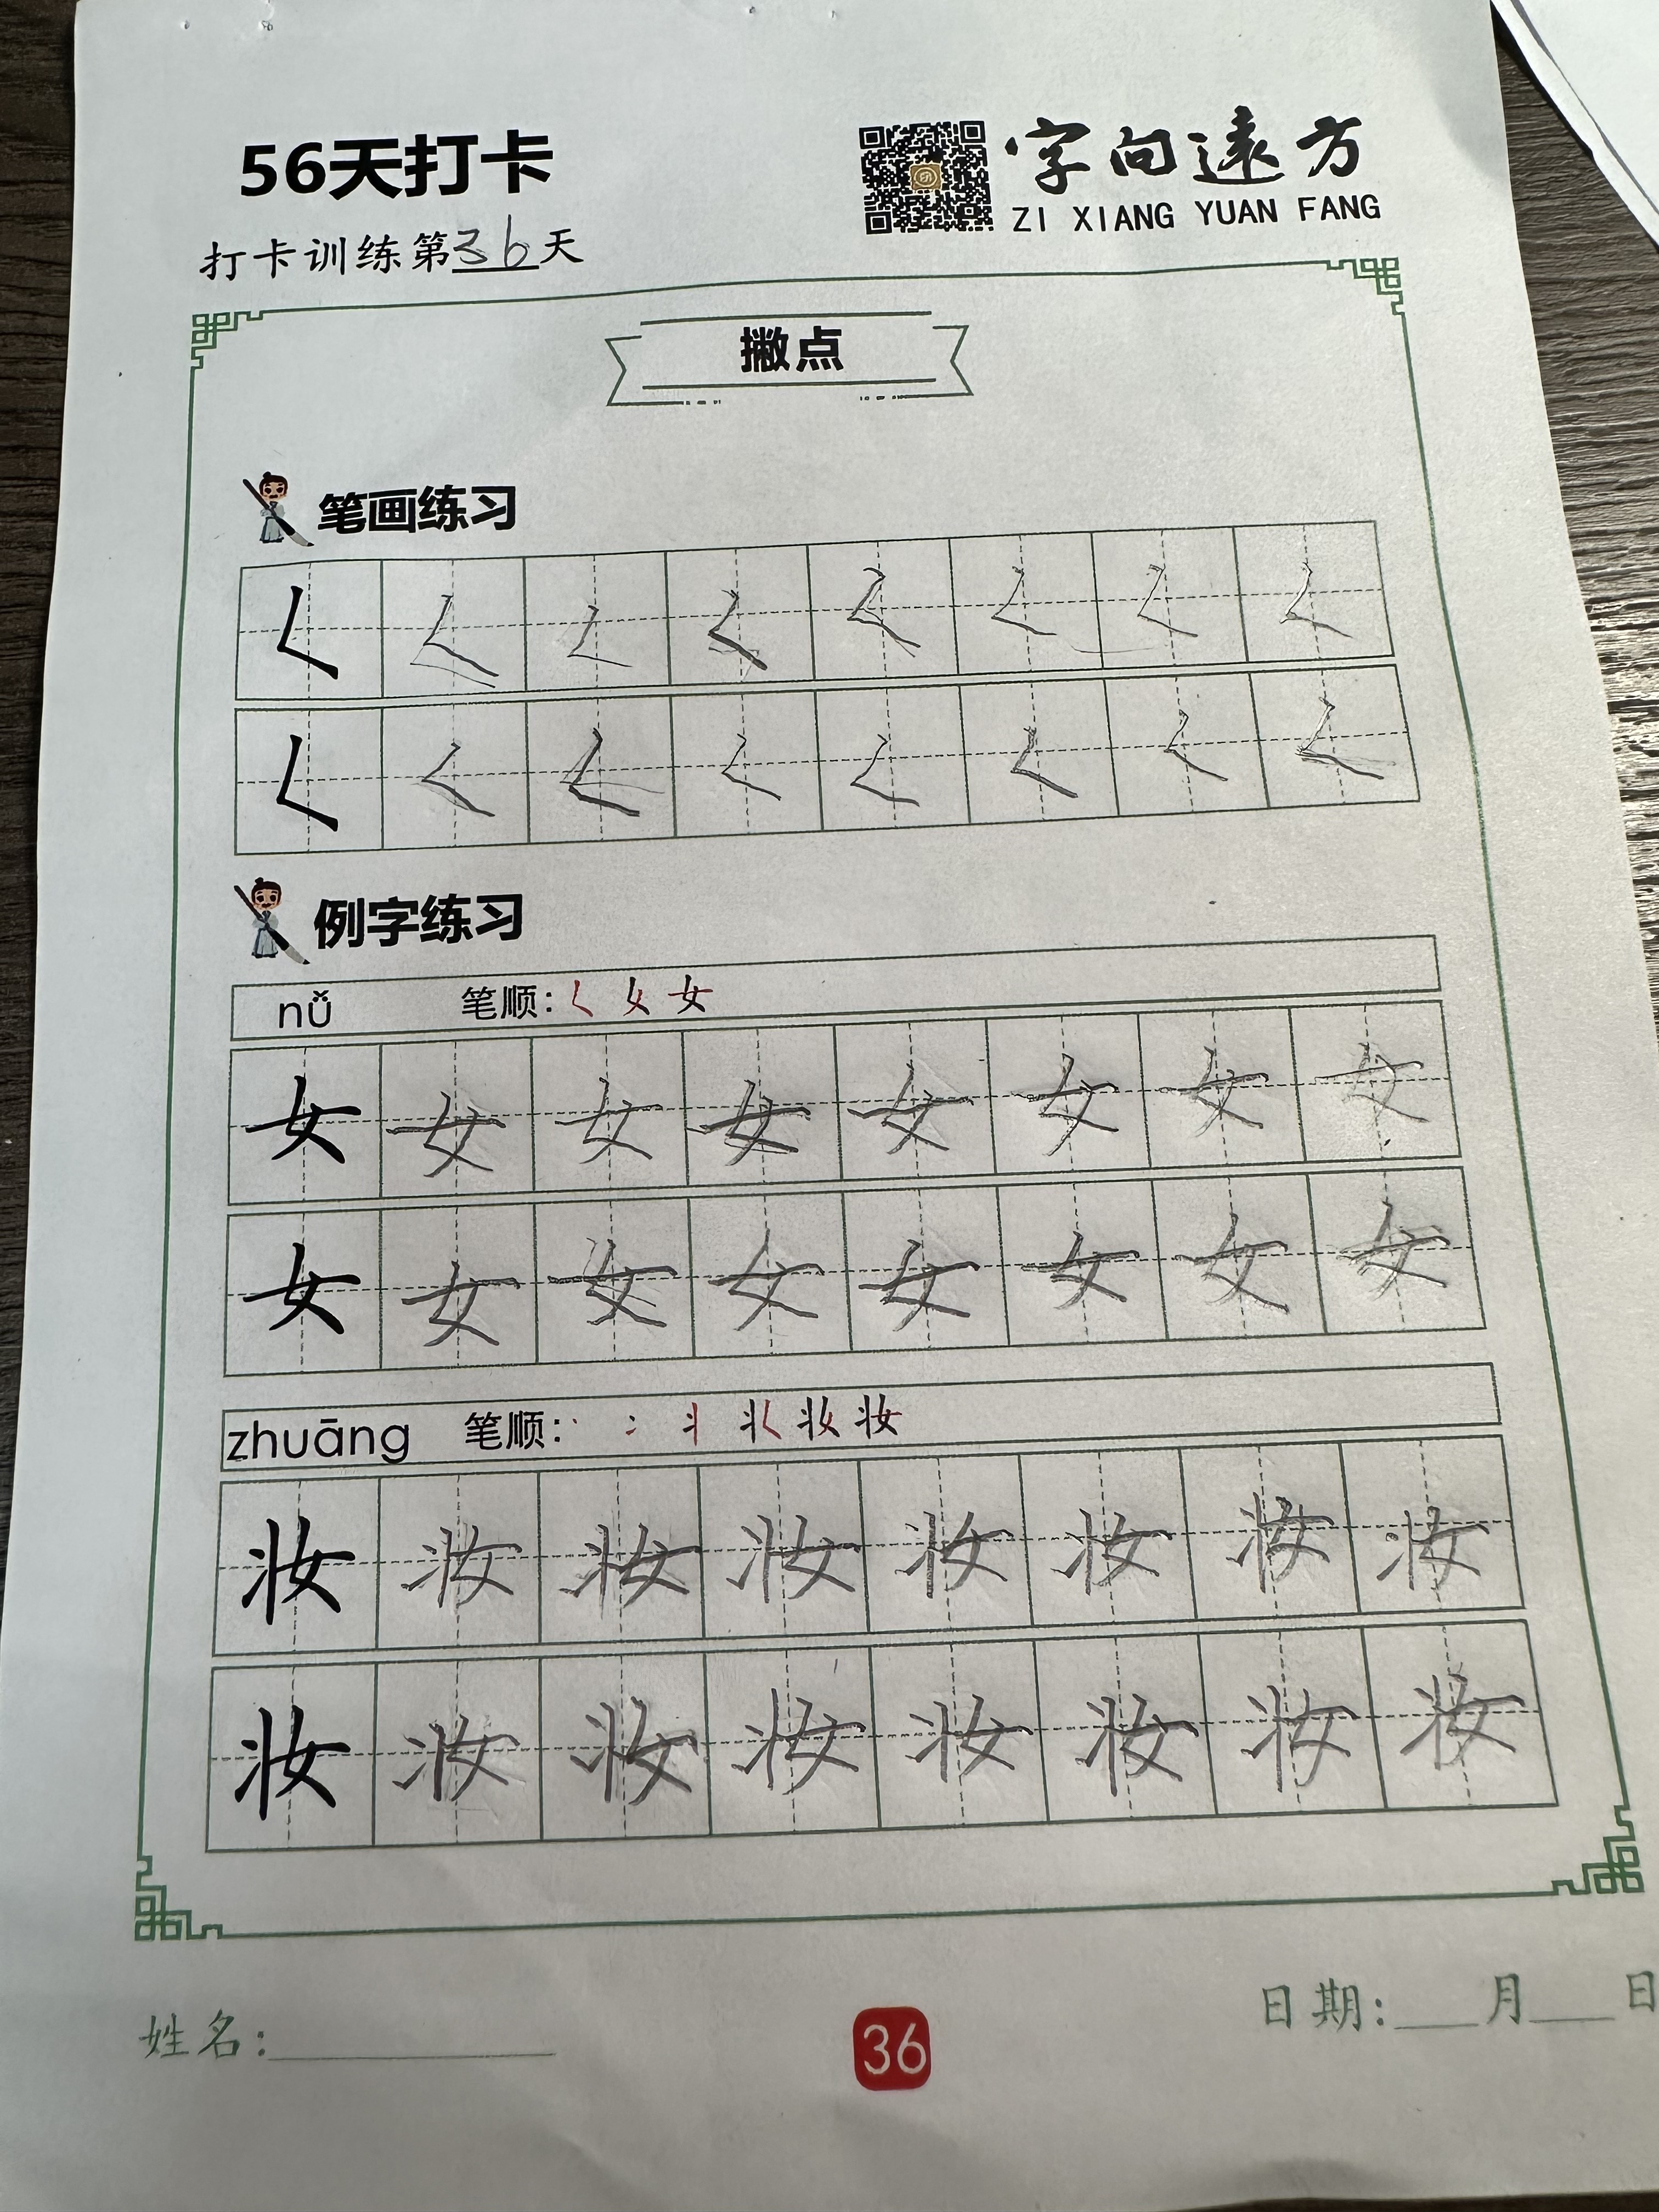 56天打卡
字向遠方
ZI XIANG YUAN FANG
打卡训练第36天
撇点
笔画练习
𡿨 𡿨 𡿨 𡿨 𡿨 𡿨 𡿨 𡿨
𡿨 𡿨 𡿨 𡿨 𡿨 𡿨 𡿨 𡿨
例字练习
nǚ 笔顺: 𡿨 女 女
女 女 女 女 女 女 女 女
女 女 女 女 女 女 女 女
zhuāng 笔顺: 丶 冫 丬 妆 妆 妆
妆 妆 妆 妆 妆 妆 妆 妆
妆 妆 妆 妆 妆 妆 妆 妆
姓名:
36
日期: 月 日